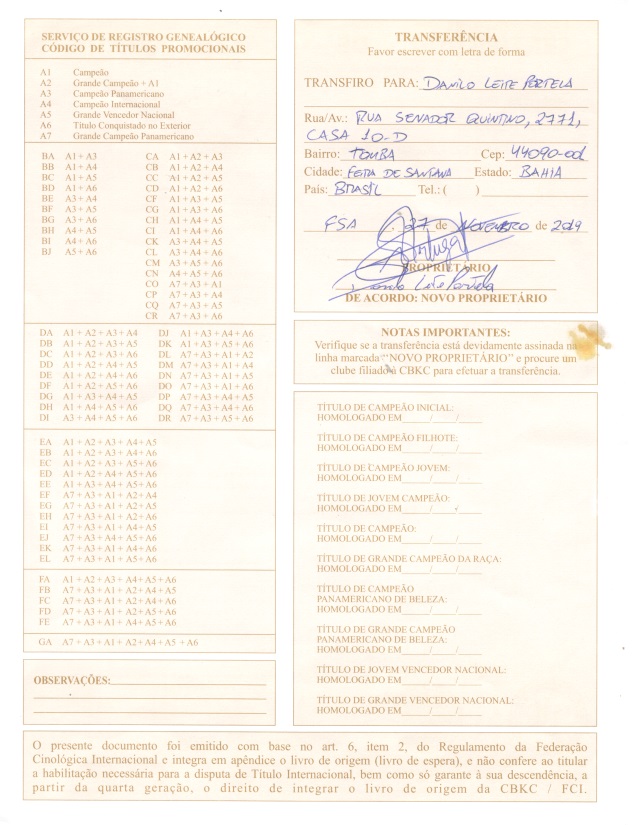 SERVIÇO DE REGISTRO GENEALÓGICO
CÓDIGO DE TÍTULOS PROMOCIONAIS
A1 Campeão
A2 Grande Campeão + A1
A3 Campeão Panamericano
A4 Campeão Internacional
A5 Grande Vencedor Nacional
A6 Título Conquistado no Exterior
A7 Grande Campeão Panamericano
BA A1 + A3
BB A1 + A4
BC A1 + A5
BD A1 + A6
BE A3 + A4
BF A3 + A5
BG A3 + A6
BH A4 + A5
BI A4 + A6
BJ A5 + A6
CA A1 + A2 + A3
CB A1 + A2 + A4
CC A1 + A2 + A5
CD A1 + A2 + A6
CF A1 + A3 + A5
CG A1 + A3 + A6
CH A1 + A4 + A5
CI A1 + A4 + A6
CK A3 + A4 + A5
CL A3 + A4 + A6
CM A3 + A5 + A6
CN A4 + A5 + A6
CO A7 + A3 + A1
CP A7 + A3 + A4
CQ A7 + A3 + A5
CR A7 + A3 + A6
DA A1 + A2 + A3 + A4
DB A1 + A2 + A3 + A5
DC A1 + A2 + A3 + A6
DD A1 + A2 + A4 + A5
DE A1 + A2 + A4 + A6
DF A1 + A2 + A5 + A6
DG A1 + A3 + A4 + A5
DH A1 + A4 + A5 + A6
DI A3 + A4 + A5 + A6
DJ A1 + A3 + A4 + A6
DK A1 + A3 + A5 + A6
DL A7 + A3 + A1 + A2
DM A7 + A3 + A1 + A4
DN A7 + A3 + A1 + A5
DO A7 + A3 + A1 + A6
DP A7 + A3 + A4 + A5
DQ A7 + A3 + A4 + A6
DR A7 + A3 + A5 + A6
EA A1 + A2 + A3 + A4 + A5
EB A1 + A2 + A3 + A4 + A6
EC A1 + A2 + A3 + A5 + A6
ED A1 + A2 + A4 + A5 + A6
EE A1 + A3 + A4 + A5 + A6
EF A7 + A3 + A1 + A2 + A4
EG A7 + A3 + A1 + A2 + A5
EH A7 + A3 + A1 + A2 + A6
EI A7 + A3 + A1 + A4 + A5
EJ A7 + A3 + A4 + A5 + A6
EK A7 + A3 + A1 + A4 + A6
EL A7 + A3 + A1 + A5 + A6
FA A1 + A2 + A3 + A4 + A5 + A6
FB A7 + A3 + A1 + A2 + A4 + A5
FC A7 + A3 + A1 + A2 + A4 + A6
FD A7 + A3 + A1 + A2 + A5 + A6
FE A7 + A3 + A1 + A4 + A5 + A6
GA A7 + A3 + A1 + A2 + A4 + A5 + A6
OBSERVAÇÕES:
TRANSFERÊNCIA
Favor escrever com letra de forma
TRANSFIRO PARA: DANILO LEITE PORTELA
Rua/Av.: RUA SENADOR QUINTINO, 2771,
CASA 10-D
Bairro: TOMBA Cep: 44090-001
Cidade: FEIRA DE SANTANA Estado: BAHIA
País: BRASIL Tel.: ( )
FSA, 27 de NOVEMBRO de 2019
PROPRIETÁRIO
Danilo Leite Portela
DE ACORDO: NOVO PROPRIETÁRIO
NOTAS IMPORTANTES:
Verifique se a transferência está devidamente assinada na
linha marcada "NOVO PROPRIETÁRIO" e procure um
clube filiado à CBKC para efetuar a transferência.
TÍTULO DE CAMPEÃO INICIAL:
HOMOLOGADO EM____/____/____
TÍTULO DE CAMPEÃO FILHOTE:
HOMOLOGADO EM____/____/____
TÍTULO DE CAMPEÃO JOVEM:
HOMOLOGADO EM____/____/____
TÍTULO DE JOVEM CAMPEÃO:
HOMOLOGADO EM____/____/____
TÍTULO DE CAMPEÃO:
HOMOLOGADO EM____/____/____
TÍTULO DE GRANDE CAMPEÃO DA RAÇA:
HOMOLOGADO EM____/____/____
TÍTULO DE CAMPEÃO
PANAMERICANO DE BELEZA:
HOMOLOGADO EM____/____/____
TÍTULO DE GRANDE CAMPEÃO
PANAMERICANO DE BELEZA:
HOMOLOGADO EM____/____/____
TÍTULO DE JOVEM VENCEDOR NACIONAL:
HOMOLOGADO EM____/____/____
TÍTULO DE GRANDE VENCEDOR NACIONAL:
HOMOLOGADO EM____/____/____
O presente documento foi emitido com base no art. 6, item 2, do Regulamento da Federação
Cinológica Internacional e integra em apêndice o livro de origem (livro de espera), e não confere ao titular
a habilitação necessária para a disputa de Título Internacional, bem como só garante à sua descendência, a
partir da quarta geração, o direito de integrar o livro de origem da CBKC / FCI.